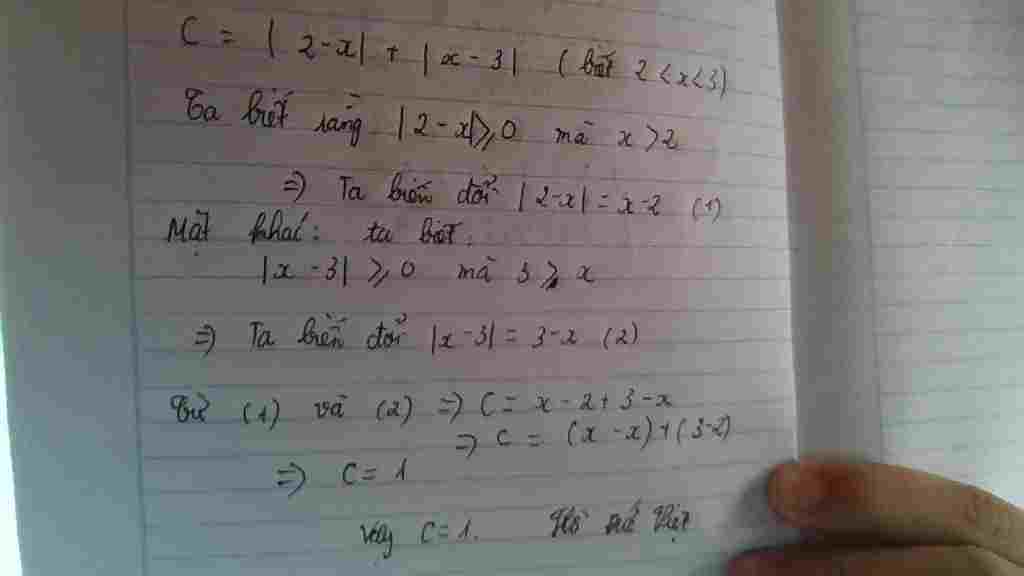 C = | 2-x| + |x-3| (biết 2 < x < 3)
Ta biết rằng |2-x| ≥ 0 mà x > 2
=> Ta biến đổi |2-x| = x-2 (1)
Mặt khác: ta biết:
|x-3| ≥ 0 mà 3 > x
=> Ta biến đổi |x-3| = 3-x (2)
Từ (1) và (2) => C = x-2+3-x
=> C = (x-x)+(3-2)
=> C = 1
Vậy C = 1.